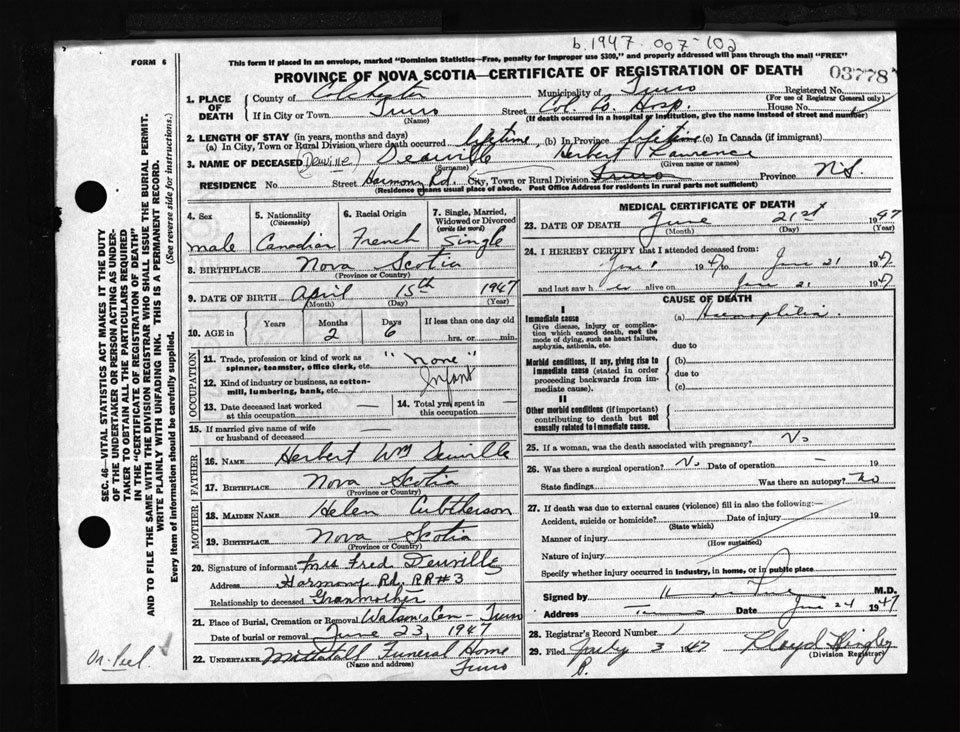 b. 1947. 007-102
FORM 6
This form if placed in an envelope, marked "Dominion Statistics—Free, penalty for improper use $300," and properly addressed will pass through the mail "FREE"
PROVINCE OF NOVA SCOTIA—CERTIFICATE OF REGISTRATION OF DEATH
03778
1. PLACE OF DEATH
County of Colchester Municipality of Truro Registered No.
(For use of Registrar General only)
If in City or Town Truro Street Col. Co. Hosp. House No.
(Name) (If death occurred in a hospital or institution, give the name instead of street and number)
2. LENGTH OF STAY (in years, months and days)
(a) In City, Town or Rural Division where death occurred lifetime (b) In Province lifetime (c) In Canada (if immigrant)
3. NAME OF DECEASED (Deuville) Deauville Herbert Lawrence
(Surname) (Given name or names)
RESIDENCE No. Street Harmony Rd. City, Town or Rural Division Truro Province N.S.
(Residence means usual place of abode. Post Office Address for residents in rural parts not sufficient)
4. Sex 5. Nationality (Citizenship) 6. Racial Origin 7. Single, Married, Widowed or Divorced (write the word)
male Canadian French Single
8. BIRTHPLACE Nova Scotia
(Province or Country)
9. DATE OF BIRTH April 15th 1947
(Month) (Day) (Year)
10. AGE in Years Months Days If less than one day old
2 6 hrs. or min.
OCCUPATION
11. Trade, profession or kind of work as spinner, teamster, office clerk, etc. "none"
12. Kind of industry or business, as cotton-mill, lumbering, bank, etc. Infant
13. Date deceased last worked at this occupation — 14. Total yrs. spent in this occupation —
15. If married give name of wife or husband of deceased
FATHER
16. NAME Herbert Wm Deuville
17. BIRTHPLACE Nova Scotia
(Province or Country)
MOTHER
18. MAIDEN NAME Helen
19. BIRTHPLACE Nova Scotia
(Province or Country)
20. Signature of informant Mrs Fred Deuville
Address Harmony Rd. RR#3
Relationship to deceased Granmother
21. Place of Burial, Cremation or Removal Watson's Cem - Truro
Date of burial or removal June 23, 1947
22. UNDERTAKER Mattatall Funeral Home
(Name and address) Truro
MEDICAL CERTIFICATE OF DEATH
23. DATE OF DEATH June 21st 1947
(Month) (Day) (Year)
24. I HEREBY CERTIFY that I attended deceased from:
June 1 1947 to June 21 1947
and last saw h alive on June 21 1947
CAUSE OF DEATH
I
Immediate cause (a)
Give disease, injury or complication which caused death, not the mode of dying, such as heart failure, asphyxia, asthenia, etc. due to
Morbid conditions, if any, giving rise to immediate cause (stated in order proceeding backwards from immediate cause). (b)
due to
(c)
II
Other morbid conditions (if important) contributing to death but not causally related to immediate cause.
25. If a woman, was the death associated with pregnancy? No
26. Was there a surgical operation? No Date of operation — 19
State findings Was there an autopsy? No
27. If death was due to external causes (violence) fill in also the following:—
Accident, suicide or homicide? Date of injury 19
(State which)
Manner of injury
(How sustained)
Nature of injury
Specify whether injury occurred in industry, in home, or in public place
Signed by M.D.
Address Truro Date June 24 1947
28. Registrar's Record Number 1
29. Filed July 3 1947 Lloyd
(Division Registrar)
SEC. 46—VITAL STATISTICS ACT MAKES IT THE DUTY OF THE UNDERTAKER OR PERSON ACTING AS UNDERTAKER TO OBTAIN ALL THE PARTICULARS REQUIRED IN THE "CERTIFICATE OF REGISTRATION OF DEATH" AND TO FILE THE SAME WITH THE DIVISION REGISTRAR WHO SHALL ISSUE THE BURIAL PERMIT.
WRITE PLAINLY WITH UNFADING INK. THIS IS A PERMANENT RECORD.
Every item of information should be carefully supplied. (See reverse side for instructions.)